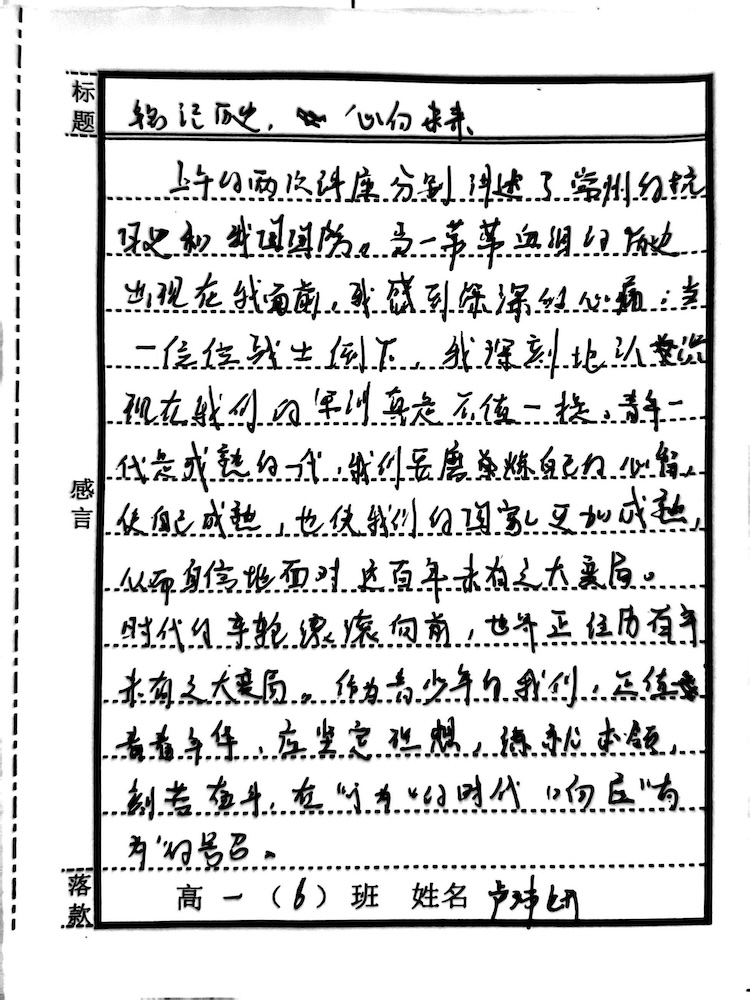 标题
铭记历史，心向未来
上午的两次讲座分别讲述了常州的抗
历史和我国国防。当一幕幕血组的历史
出现在我面前，我感到深深的心痛；当
一位位战士倒下，我深刻地认识
现在我们的军训真是不值一提。青年一
代是成熟的一代，我们要磨炼自己的心智，
使自己成熟，也使我们的国家更加成熟，
从而自信地面对这百年未有之大变局。
时代的车轮滚滚向前，世界正经历百年
未有之大变局。作为青少年的我们，正值
青春年华，应坚定理想，练就本领，
刻苦奋斗，在“可为”的时代响应“有
为”的号召。
感言
落款
高一（6）班 姓名 卢